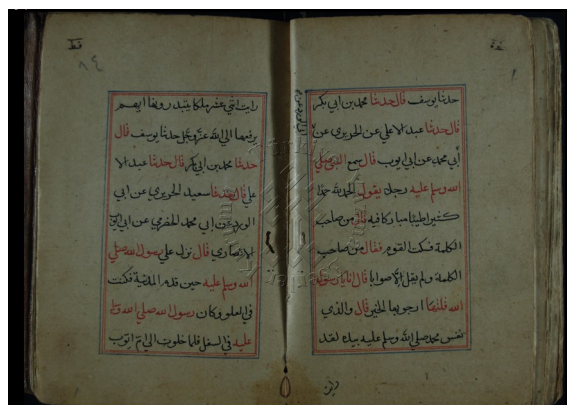 حدثنا يوسف قال حدثنا محمد بن ابي بكر
قال حدثنا عبد الاعلي عن الجريري عن
أبي محمد عن ابي ايوب قال سمع النبي صلي
الله وسلم عليه رجل يقول الحمد لله حمدا
كثيرا طيبا مباركا فيه قال من صاحب
الكلمة فسكت القوم فقال من صاحب
الكلمة ولم يقل الا صوابا قال انا يا رسول
الله قلتها ارجو بها الخير قال والذي
نفس محمد صلي الله وسلم عليه بيده لقد
رايت اثني عشر ملكا يبتدرون ايهم
يرفعها الي الله عز وجل حدثنا يوسف قال
حدثنا محمد بن ابي بكر قال حدثنا عبد الا
علي قال حدثنا سعيد الجريري عن ابي
الورد عن ابي محمد الحضرمي عن ابي ايوب
الانصاري قال نزل علي رسول الله صلي
الله وسلم عليه حين قدم المدينة فكنت
في العلو وكان رسول الله صلي الله وسلم
عليه في السفل فلما خلوت الي ام ايوب